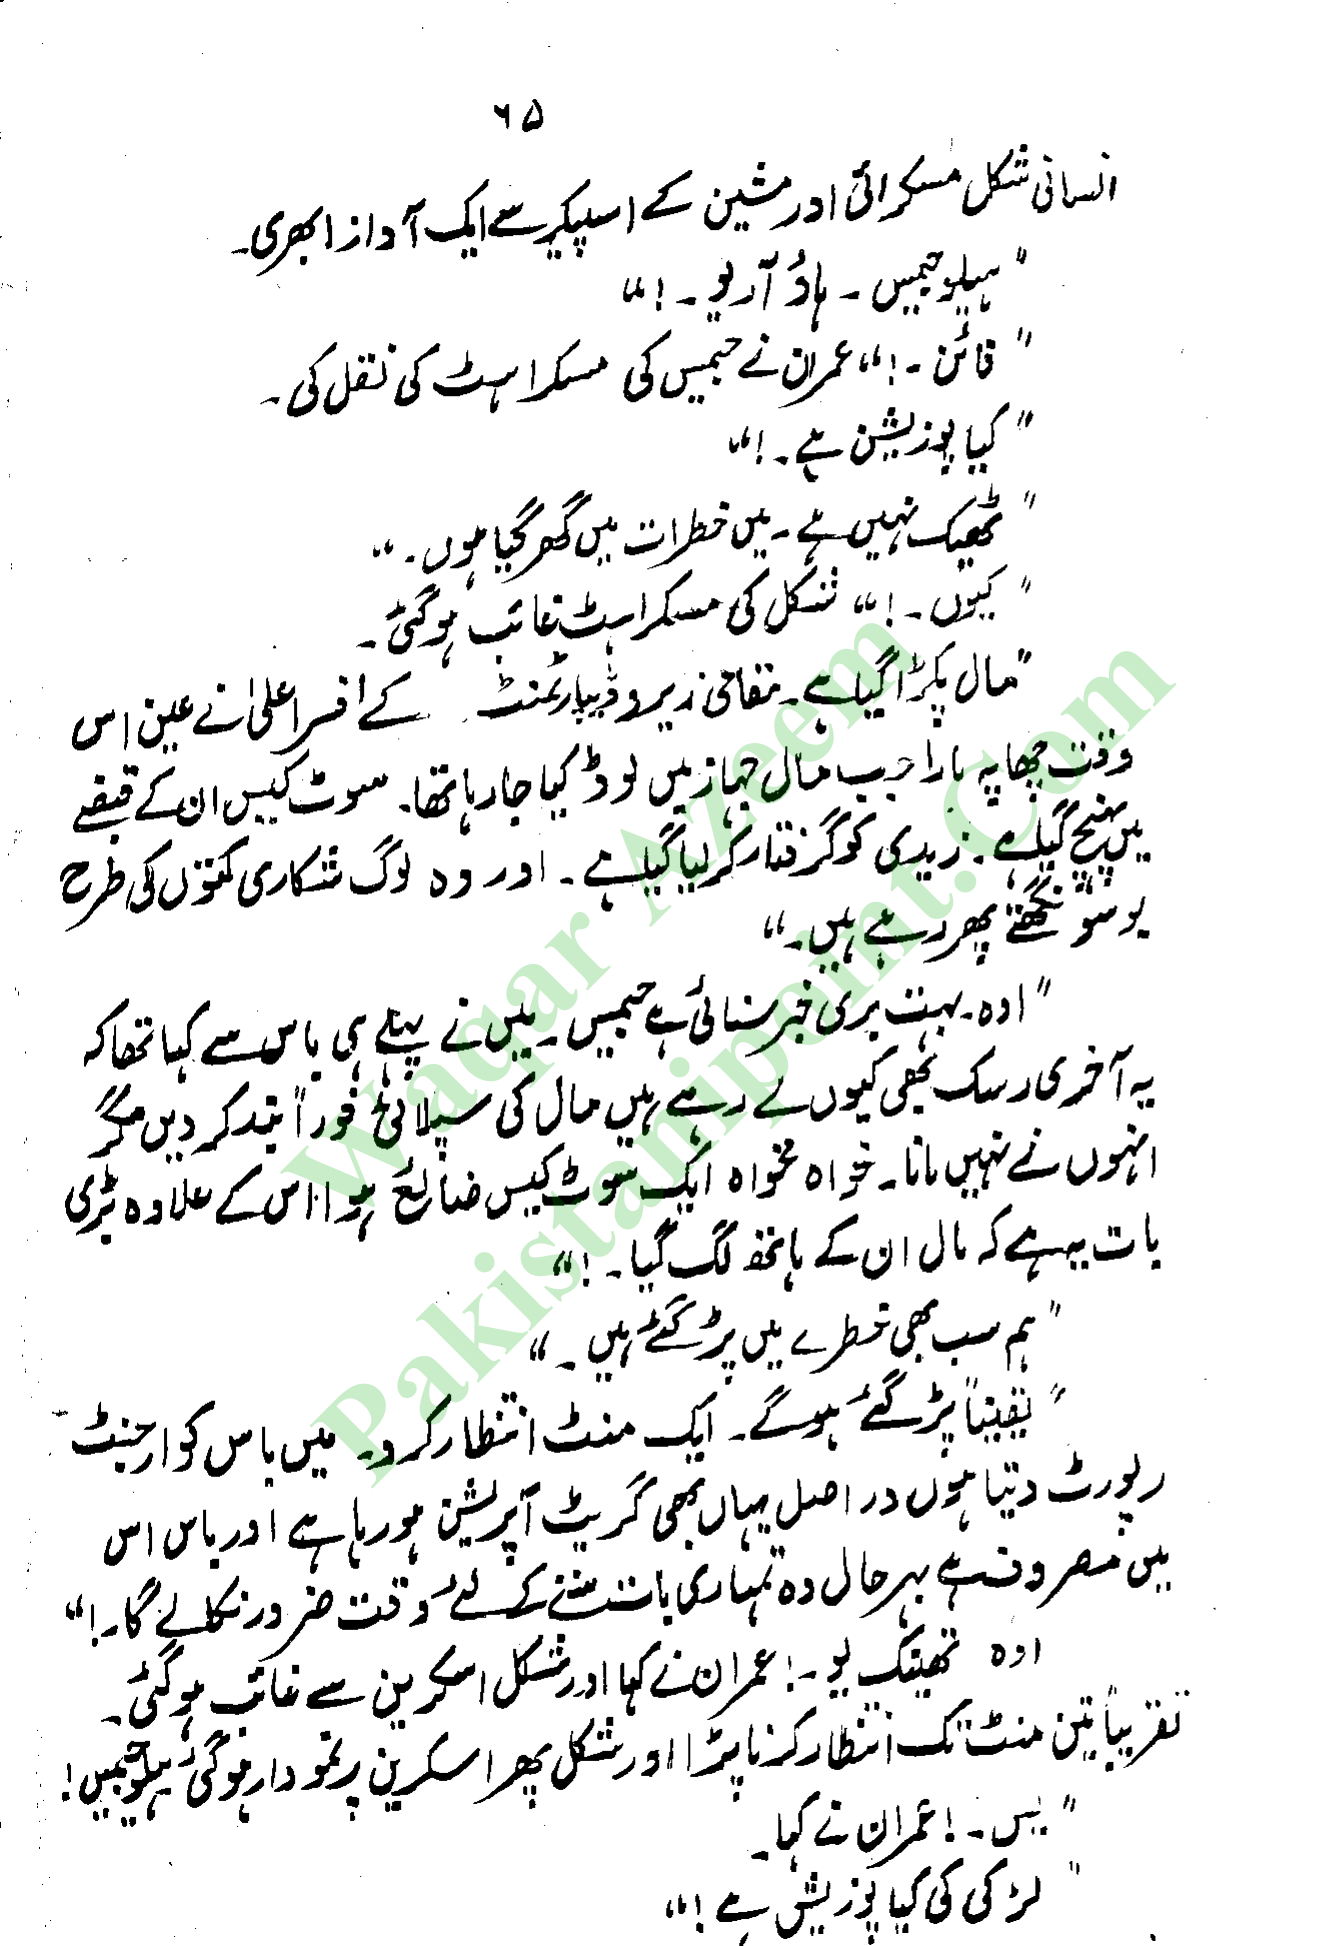 ۶۵
انسانی شکل مسکرائی اور مشین کے اسپیکر سے ایک آواز ابھری۔
"ہیلو جیمس ۔ ہاؤ آر یو ۔!"
"فائن ۔!" عمران نے جیمس کی مسکراہٹ کی نقل کی ۔
"کیا پوزیشن ہے ۔!"
"ٹھیک نہیں ہے ۔ میں خطرات میں گھر گیا ہوں ۔"
"کیوں ۔!" شکل کی مسکراہٹ غائب ہوگئی ۔
"مال پکڑا گیا ہے ۔ مقامی زیرو ڈیپارٹمنٹ کے افسر اعلیٰ نے عین اس
وقت چھاپہ مارا جب مال جہاز میں لوڈ کیا جا رہا تھا ۔ سوٹ کیس ان کے قبضے
میں پہنچ گیا ہے ۔ زیدی کو گرفتار کر لیا گیا ہے ۔ اور وہ لوگ شکاری کتوں کی طرح
بو سونگھتے پھر رہے ہیں ۔"
"اوہ ۔ بہت بری خبر سنائی ہے جیمس ۔ میں نے پہلے ہی باس سے کہا تھا کہ
یہ آخری رسک بھی کیوں لے رہے ہیں مال کی سپلائی فوراً بند کر دیں مگر
انہوں نے نہیں مانا ۔ خواہ مخواہ ایک سوٹ کیس ضائع ہوا اس کے علاوہ بڑی
بات یہ ہے کہ مال ان کے ہاتھ لگ گیا ۔!"
"ہم سب بھی خطرے میں پڑ گئے ہیں ۔"
"یقیناً پڑ گئے ہوگے ۔ ایک منٹ انتظار کرو ۔ میں باس کو ارجنٹ
رپورٹ دیتا ہوں دراصل یہاں بھی گریٹ آپریشن ہو رہا ہے اور باس اس
میں مصروف ہے بہرحال وہ تمہاری بات سننے کے لئے وقت ضرور نکالے گا ۔!"
اوہ تھینک یو ۔! عمران نے کہا اور شکل اسکرین سے غائب ہوگئی ۔
تقریباً تین منٹ تک انتظار کرنا پڑا اور شکل پھر اسکرین پر نمودار ہوگئی "ہیلو جیمیں!
"یس ۔! عمران نے کہا ۔
"لڑکی کی کیا پوزیشن ہے !"
Waqar Azeem
Pakistanipoint.Com